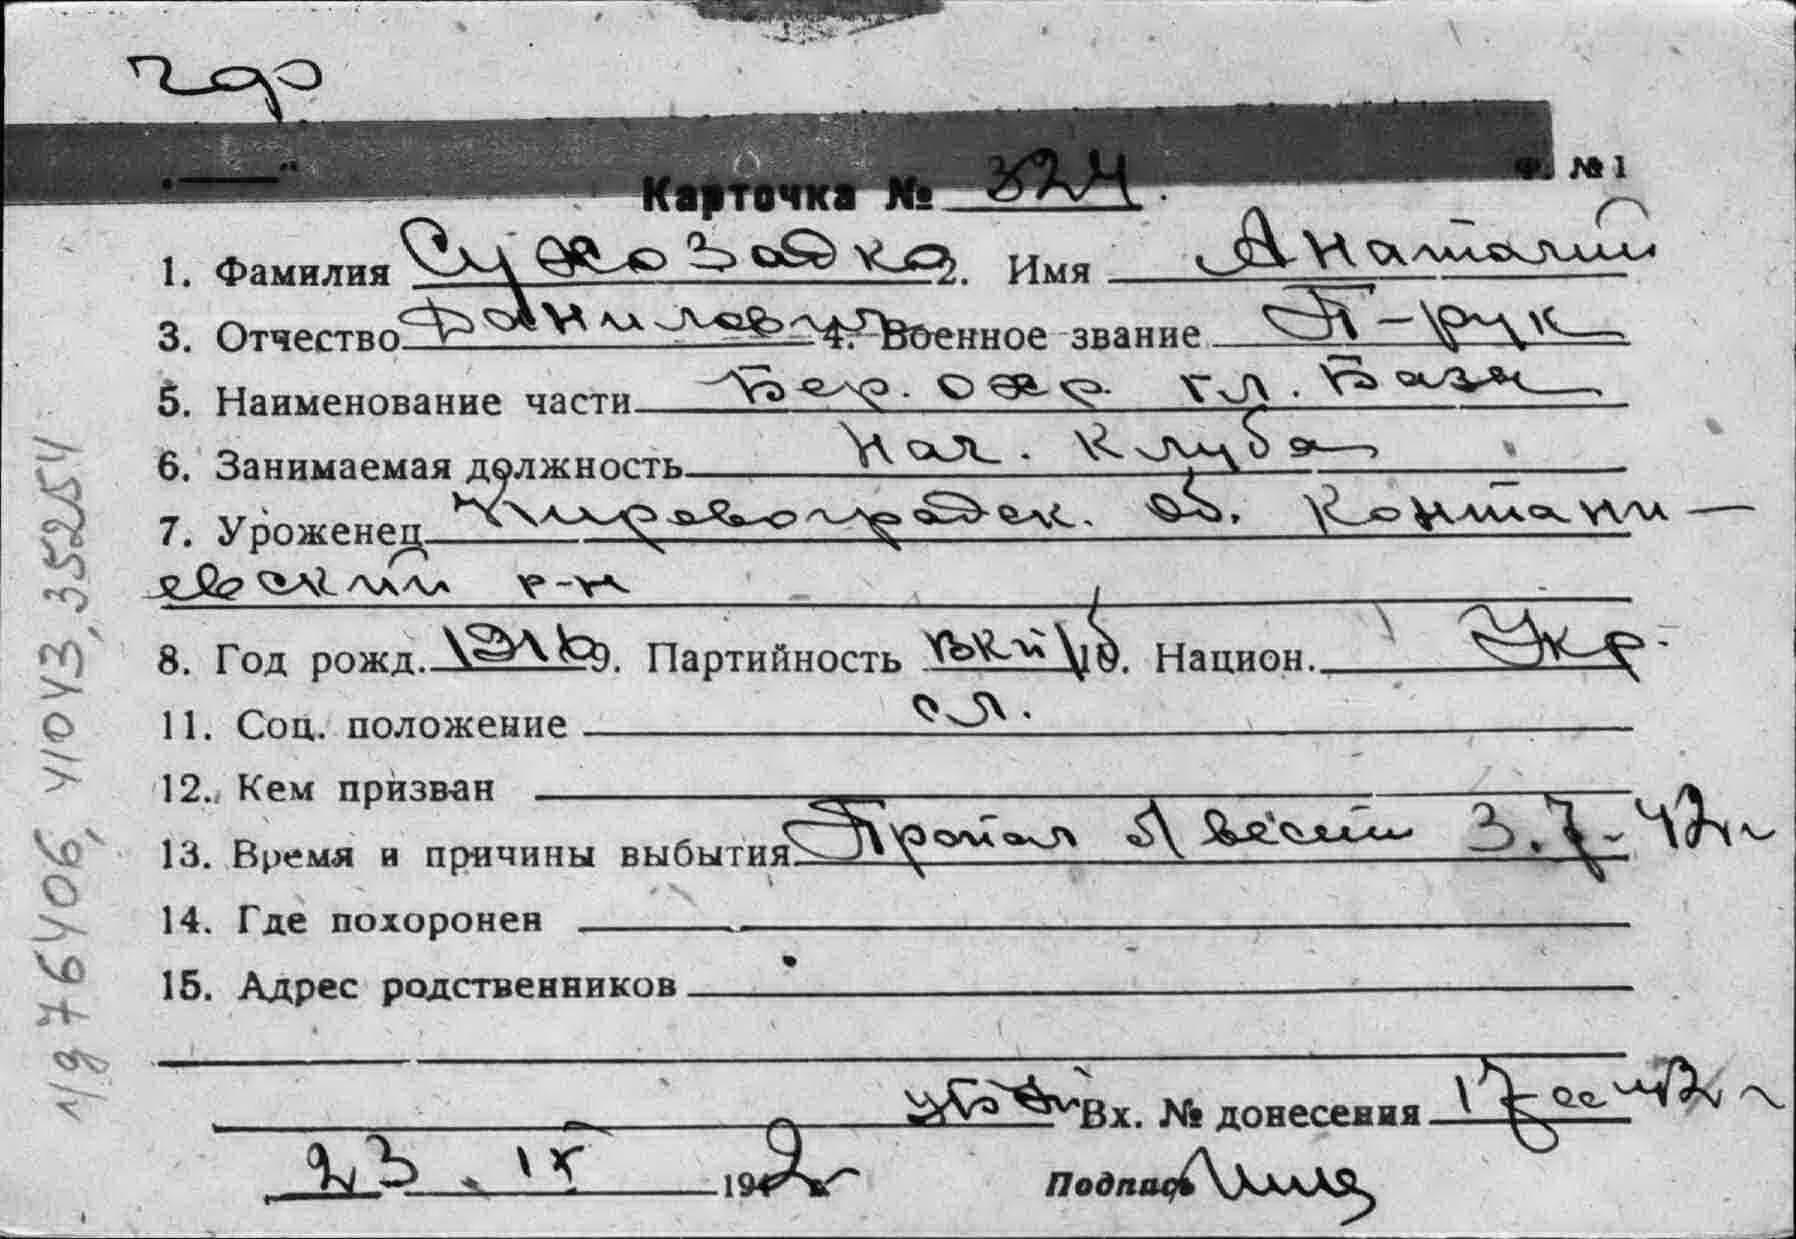 чдр
Ф. № 1
Карточка № 324
1. Фамилия Сухозадко 2. Имя Анатолий
3. Отчество Данилович 4. Военное звание П-рук
5. Наименование части Бер. охр. гл. База
6. Занимаемая должность Нач. Клуба
7. Уроженец Кировоградск. об. Контани-
евский р-н
8. Год рожд. 1916 9. Партийность ВКП/б 10. Национ. Укр.
11. Соц. положение сл.
12. Кем призван
13. Время и причины выбытия Пропал б/вести 3.7-42г
14. Где похоронен
15. Адрес родственников
Вх. № донесения 17сс 42г
23. IX 1942г Подпись
76406, 41043, 35254